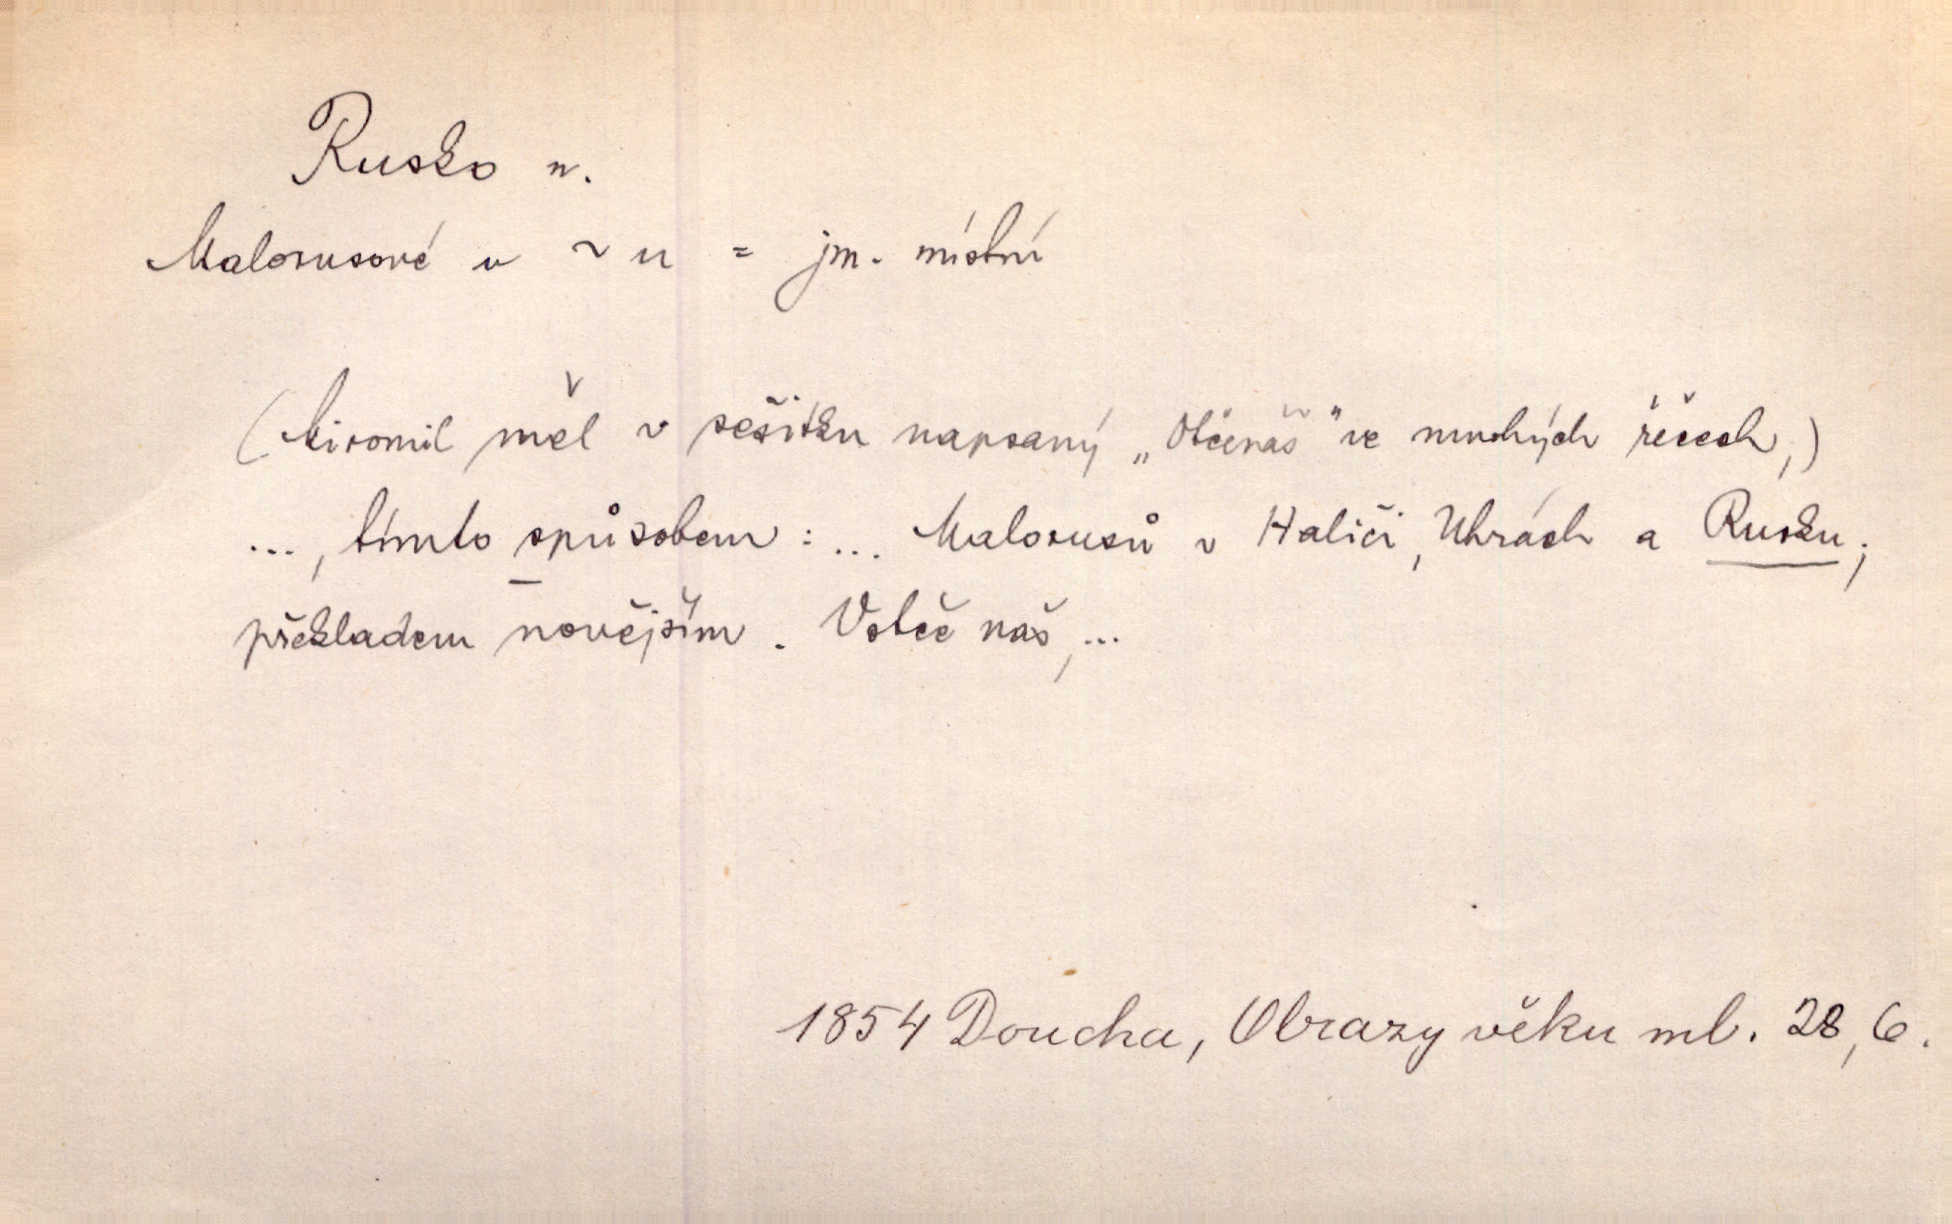 Rusko n.
Malorusové v ~ u = jm. místní
(Liromil měl v sešitku napsaný „Otčenáš" ve mnohých řěčech,)
..., tímto spůsobem : ... Malorusů v Haliči, Uhrách a Rusku;
překladem novějším. Votče naš, ...
1854 Doucha, Obrazy věku ml. 28, 6.